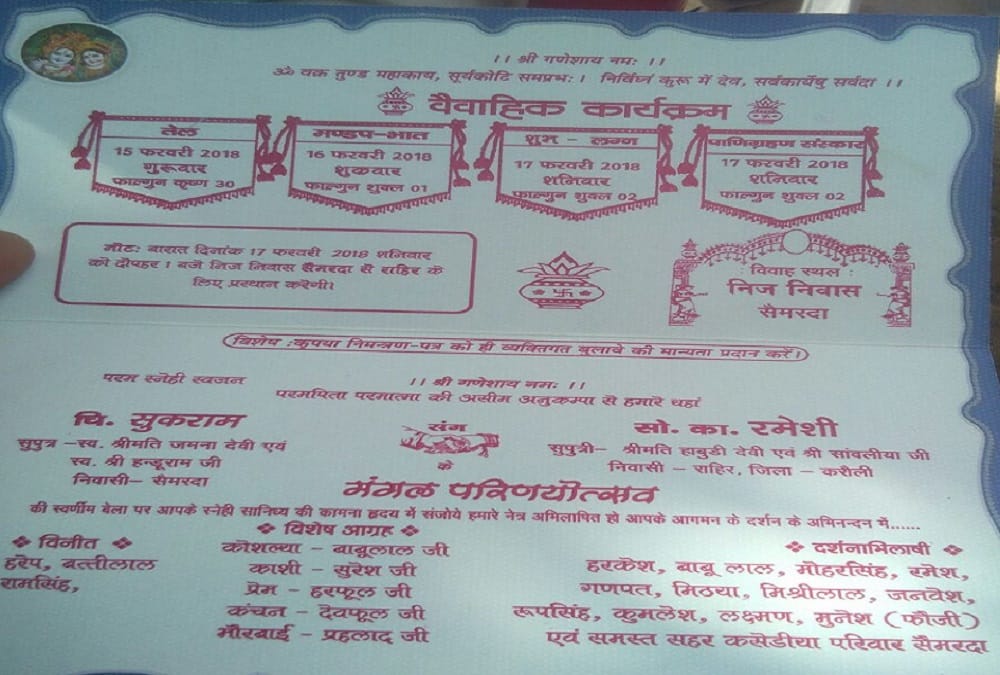 ।। श्री गणेशाय नमः ।।
ॐ वक्र तुण्ड महाकाय, सूर्यकोटि समप्रभः। निर्विघ्नं कुरू में देव, सर्वकार्येषु सर्वदा ।।
वैवाहिक कार्यक्रम
तेल
15 फरवरी 2018
गुरूवार
फाल्गुन कृष्ण 30
मण्डप-भात
16 फरवरी 2018
शुक्रवार
फाल्गुन शुक्ल 01
शुभ - लग्न
17 फरवरी 2018
शनिवार
फाल्गुन शुक्ल 02
पाणिग्रहण संस्कार
17 फरवरी 2018
शनिवार
फाल्गुन शुक्ल 02
नोटः बारात दिनांक 17 फरवरी 2018 शनिवार
को दोपहर 1 बजे निज निवास सैमरदा से राहिर के
लिए प्रस्थान करेगी।
: विवाह स्थल :
निज निवास
सैमरदा
विशेष :कृपया निमन्त्रण-पत्र को ही व्यक्तिगत बुलावे की मान्यता प्रदान करें।
परम स्नेही स्वजन
।। श्री गणेशाय नमः ।।
परमपिता परमात्मा की असीम अनुकम्पा से हमारे यहां
चि. सुकराम
सुपुत्र –स्व. श्रीमति जमना देवी एवं
स्व. श्री हन्डूराम जी
निवासी– सैमरदा
संग
के
सो. का. रमेशी
सुपुत्री– श्रीमति हाबुडी देवी एवं श्री सांवलीया जी
निवासी – राहिर, जिला – करौली
मंगल परिणयोत्सव
की स्वर्णीम बेला पर आपके स्नेही सानिध्य की कामना हृदय में संजोये हमारे नेत्र अभिलाषित हो आपके आगमन के दर्शन के अभिनन्दन में......
विनीत
हरेप, बत्तीलाल
रामसिंह,
विशेष आग्रह
कोशल्या – बाबूलाल जी
काशी – सुरेश जी
प्रेम – हरफूल जी
कंचन – देवफूल जी
मौरबाई – प्रहलाद जी
दर्शनाभिलाषी
हरकेश, बाबू लाल, मोहरसिंह, रमेश,
गणपत, मिठया, मिश्रीलाल, जनवेश,
रूपसिंह, कुमलेश, लक्ष्मण, मुनेश (फौजी)
एवं समस्त सहर कसेडीया परिवार सैमरदा